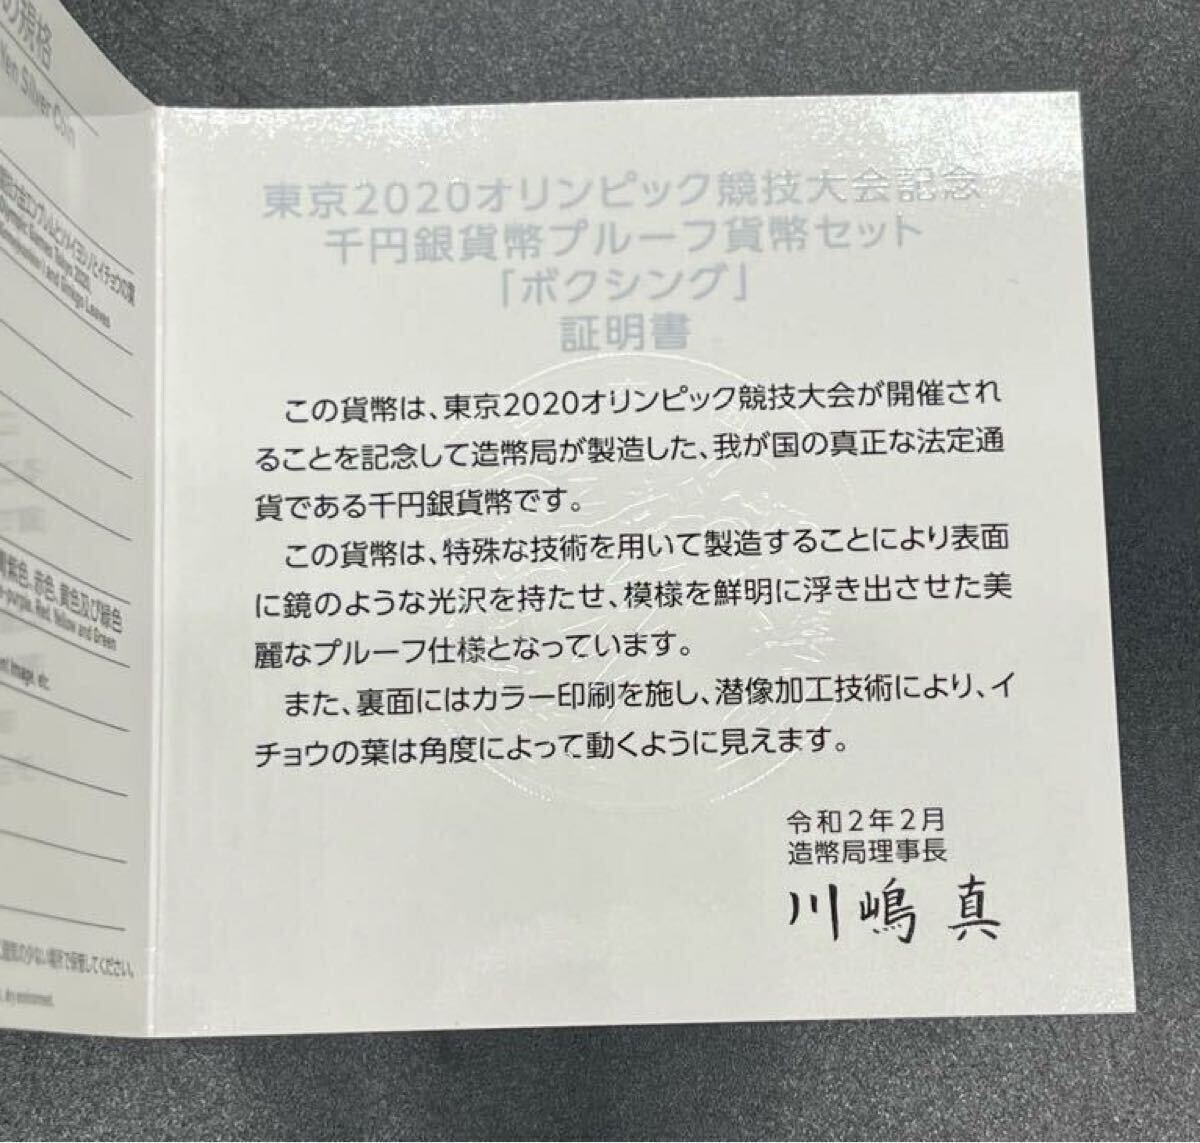 の規格
Yen Silver Coin
Olympic Games Tokyo 2020,
and Ginkgo Leaves
青紫色、赤色、黄色及び緑色
purple, Red, Yellow and Green
ent Image, etc.
湿気の少ない場所で保管してください。
, dry environment.
東京2020オリンピック競技大会記念
千円銀貨幣プルーフ貨幣セット
「ボクシング」
証明書
この貨幣は、東京2020オリンピック競技大会が開催され
ることを記念して造幣局が製造した、我が国の真正な法定通
貨である千円銀貨幣です。
この貨幣は、特殊な技術を用いて製造することにより表面
に鏡のような光沢を持たせ、模様を鮮明に浮き出させた美
麗なプルーフ仕様となっています。
また、裏面にはカラー印刷を施し、潜像加工技術により、イ
チョウの葉は角度によって動くように見えます。
令和2年2月
造幣局理事長
川嶋 真